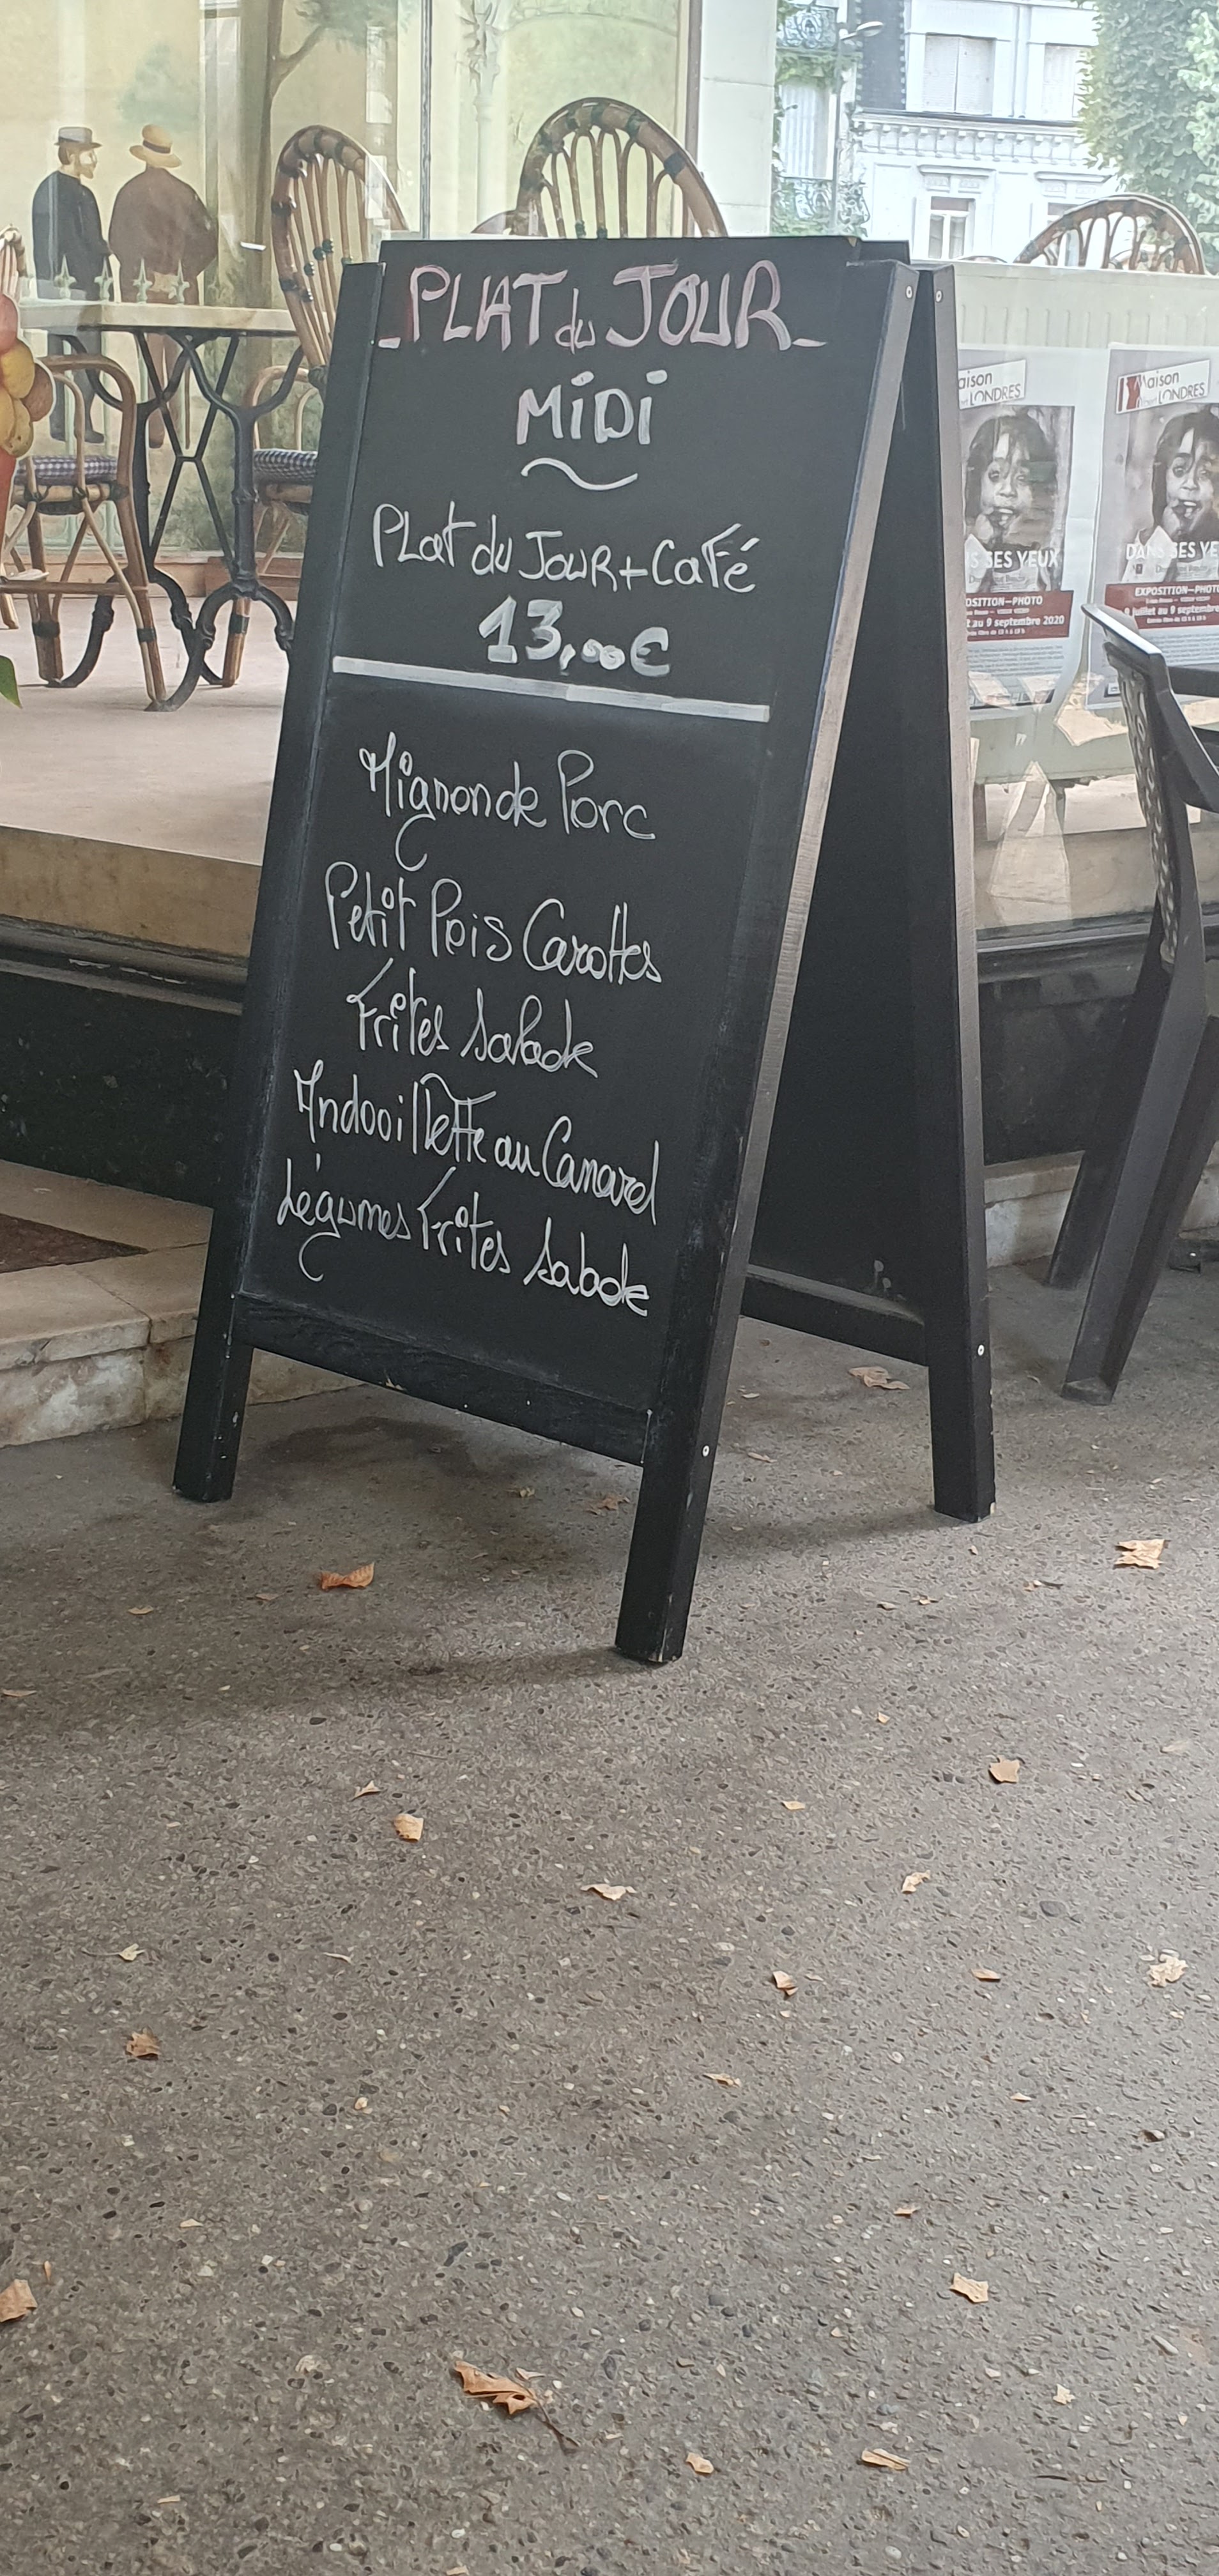 PLAT du JOUR
MiDi
Plat du JOUR + Café
13,00€
Mignon de Porc
Petit Pois Carottes
Frites Salade
Andouillette au Canard
Légumes Frites Salade
Maison
LONDRES
DANS SES YEUX
EXPOSITION—PHOTO
juillet au 9 septembre
aison
LONDRES
S SES YEUX
OSITION—PHOTO
t au 9 septembre 2020